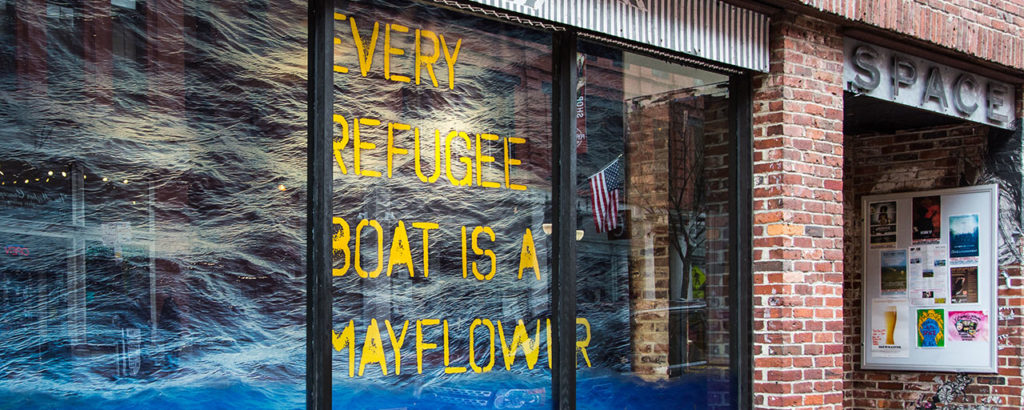 EVERY
REFUGEE
BOAT IS A
MAYFLOWER
SPACE
SHOP